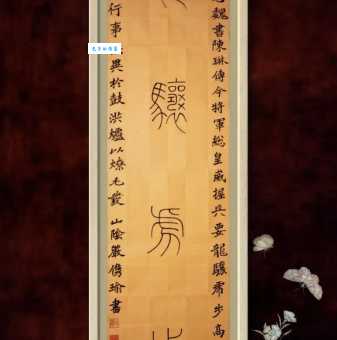 魏書陳琳傳今將軍總皇威握兵要龍驤虎步高
驤虎
行事異於鼓洪爐以燎毛髮 山陰嚴瑜書